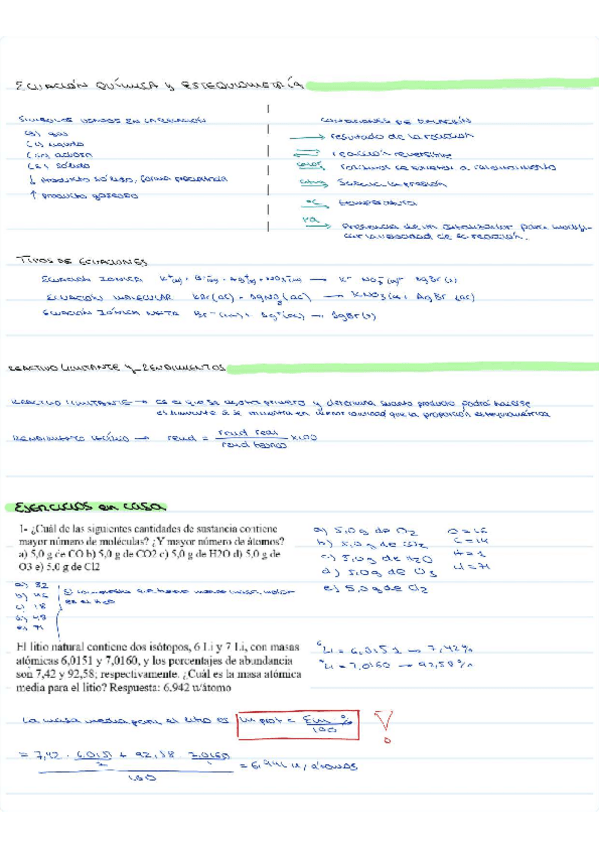 ECUACIÓN QUÍMICA y ESTEQUIOMETRÍA
SÍMBOLOS USADOS EN LA ECUACIÓN
(g) gas
(l) líquido
(ac) acuosa
(s) sólido
↓ producto sólido, forma precipitado
↑ producto gaseoso
CONDICIONES DE REACCIÓN
→ resultado de la reacción
⇌ reacción reversible
calor
presión
°C → temperatura
→ Presencia de un catalizador para modifi-
car la velocidad de la reacción.
TIPOS DE ECUACIONES
ECUACIÓN IÓNICA K⁺(ac) + Br⁻(ac) + Ag⁺(ac) + NO₃⁻(ac) → K⁺ NO₃⁻(ac) AgBr(s)
ECUACIÓN MOLECULAR KBr(ac) + AgNO₃(ac) → KNO₃(ac) + AgBr (ac)
ECUACIÓN IÓNICA NETA Br⁻(ac) + Ag⁺(ac) → AgBr(s)
REACTIVO LIMITANTE y RENDIMIENTOS
REACTIVO LIMITANTE → es el que se agota primero y determina cuanto producto podrá hacerse
el limitante si se encuentra en menor cantidad que la proporción estequiométrica
RENDIMIENTO → rend = rend real / rend teórico x100
Ejercicios en casa
1- ¿Cuál de las siguientes cantidades de sustancia contiene
mayor número de moléculas? ¿Y mayor número de átomos?
a) 5,0 g de CO b) 5,0 g de CO2 c) 5,0 g de H2O d) 5,0 g de
O3 e) 5,0 g de Cl2
a) 5,0 g de O₂
c) 5,0 g de H₂O
d) 5,0 g de O₃
e) 5,0 g de Cl₂
O = 16
C = 14
H = 1
Cl = 71
a) 32
b) 46
c) 18
d) 48
e) 71
El litio natural contiene dos isótopos, 6 Li y 7 Li, con masas
atómicas 6,0151 y 7,0160, y los porcentajes de abundancia
son 7,42 y 92,58; respectivamente. ¿Cuál es la masa atómica
media para el litio? Respuesta: 6.942 u/átomo
⁶Li = 6,0151 → 7,42%
Li = 7,0160 → 92,58%
La masa media para el litio es m pot = Σm · % / 100
= 7,42 · 6,0151 + 92,58 · 7,0160 / 100 = 6,941 u/átomos